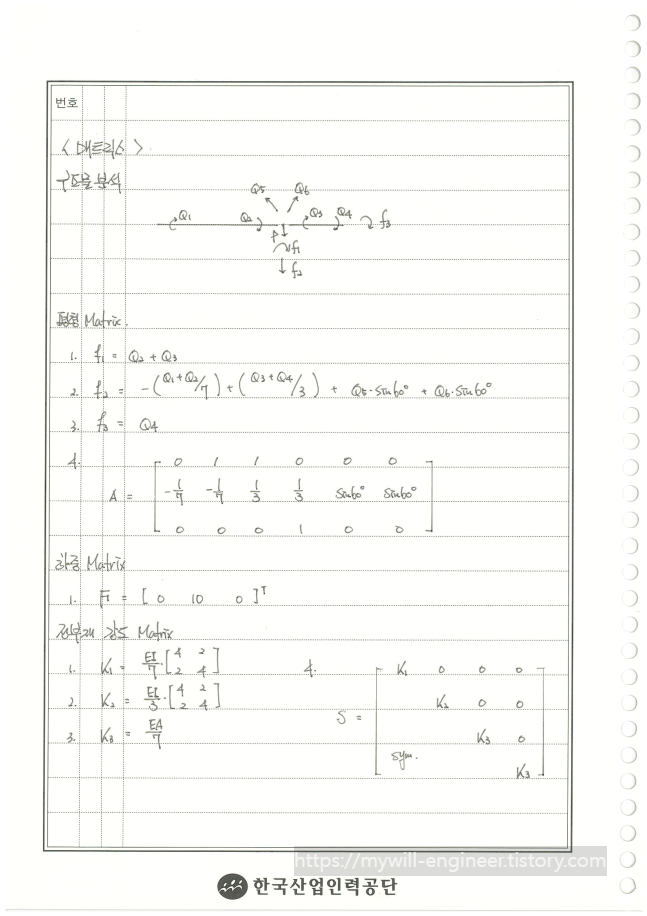 번호
<매트릭스>
구조물 분석
Q5 Q6
Q1 Q2 Q3 Q4 f3
P
f1
f2
평형 Matrix.
1. f1 = Q2 + Q3
2. f2 = -(Q1+Q2/7) + (Q3+Q4/3) + Q5·sin60° + Q6·sin60°
3. f3 = Q4
4.
0 1 1 0 0 0
A = -1/7 -1/7 1/3 1/3 sin60° sin60°
0 0 0 1 0 0
하중 Matrix
1. F = [ 0 10 0 ]ᵀ
전부재 강도 Matrix
1. K1 = EI/7·[4 2
2 4]
2. K2 = EI/3·[4 2
2 4]
3. K3 = EA/7
4.
K1 0 0 0
K2 0 0
S =
K3 0
sym.
K3
https://mywill-engineer.tistory.com
한국산업인력공단